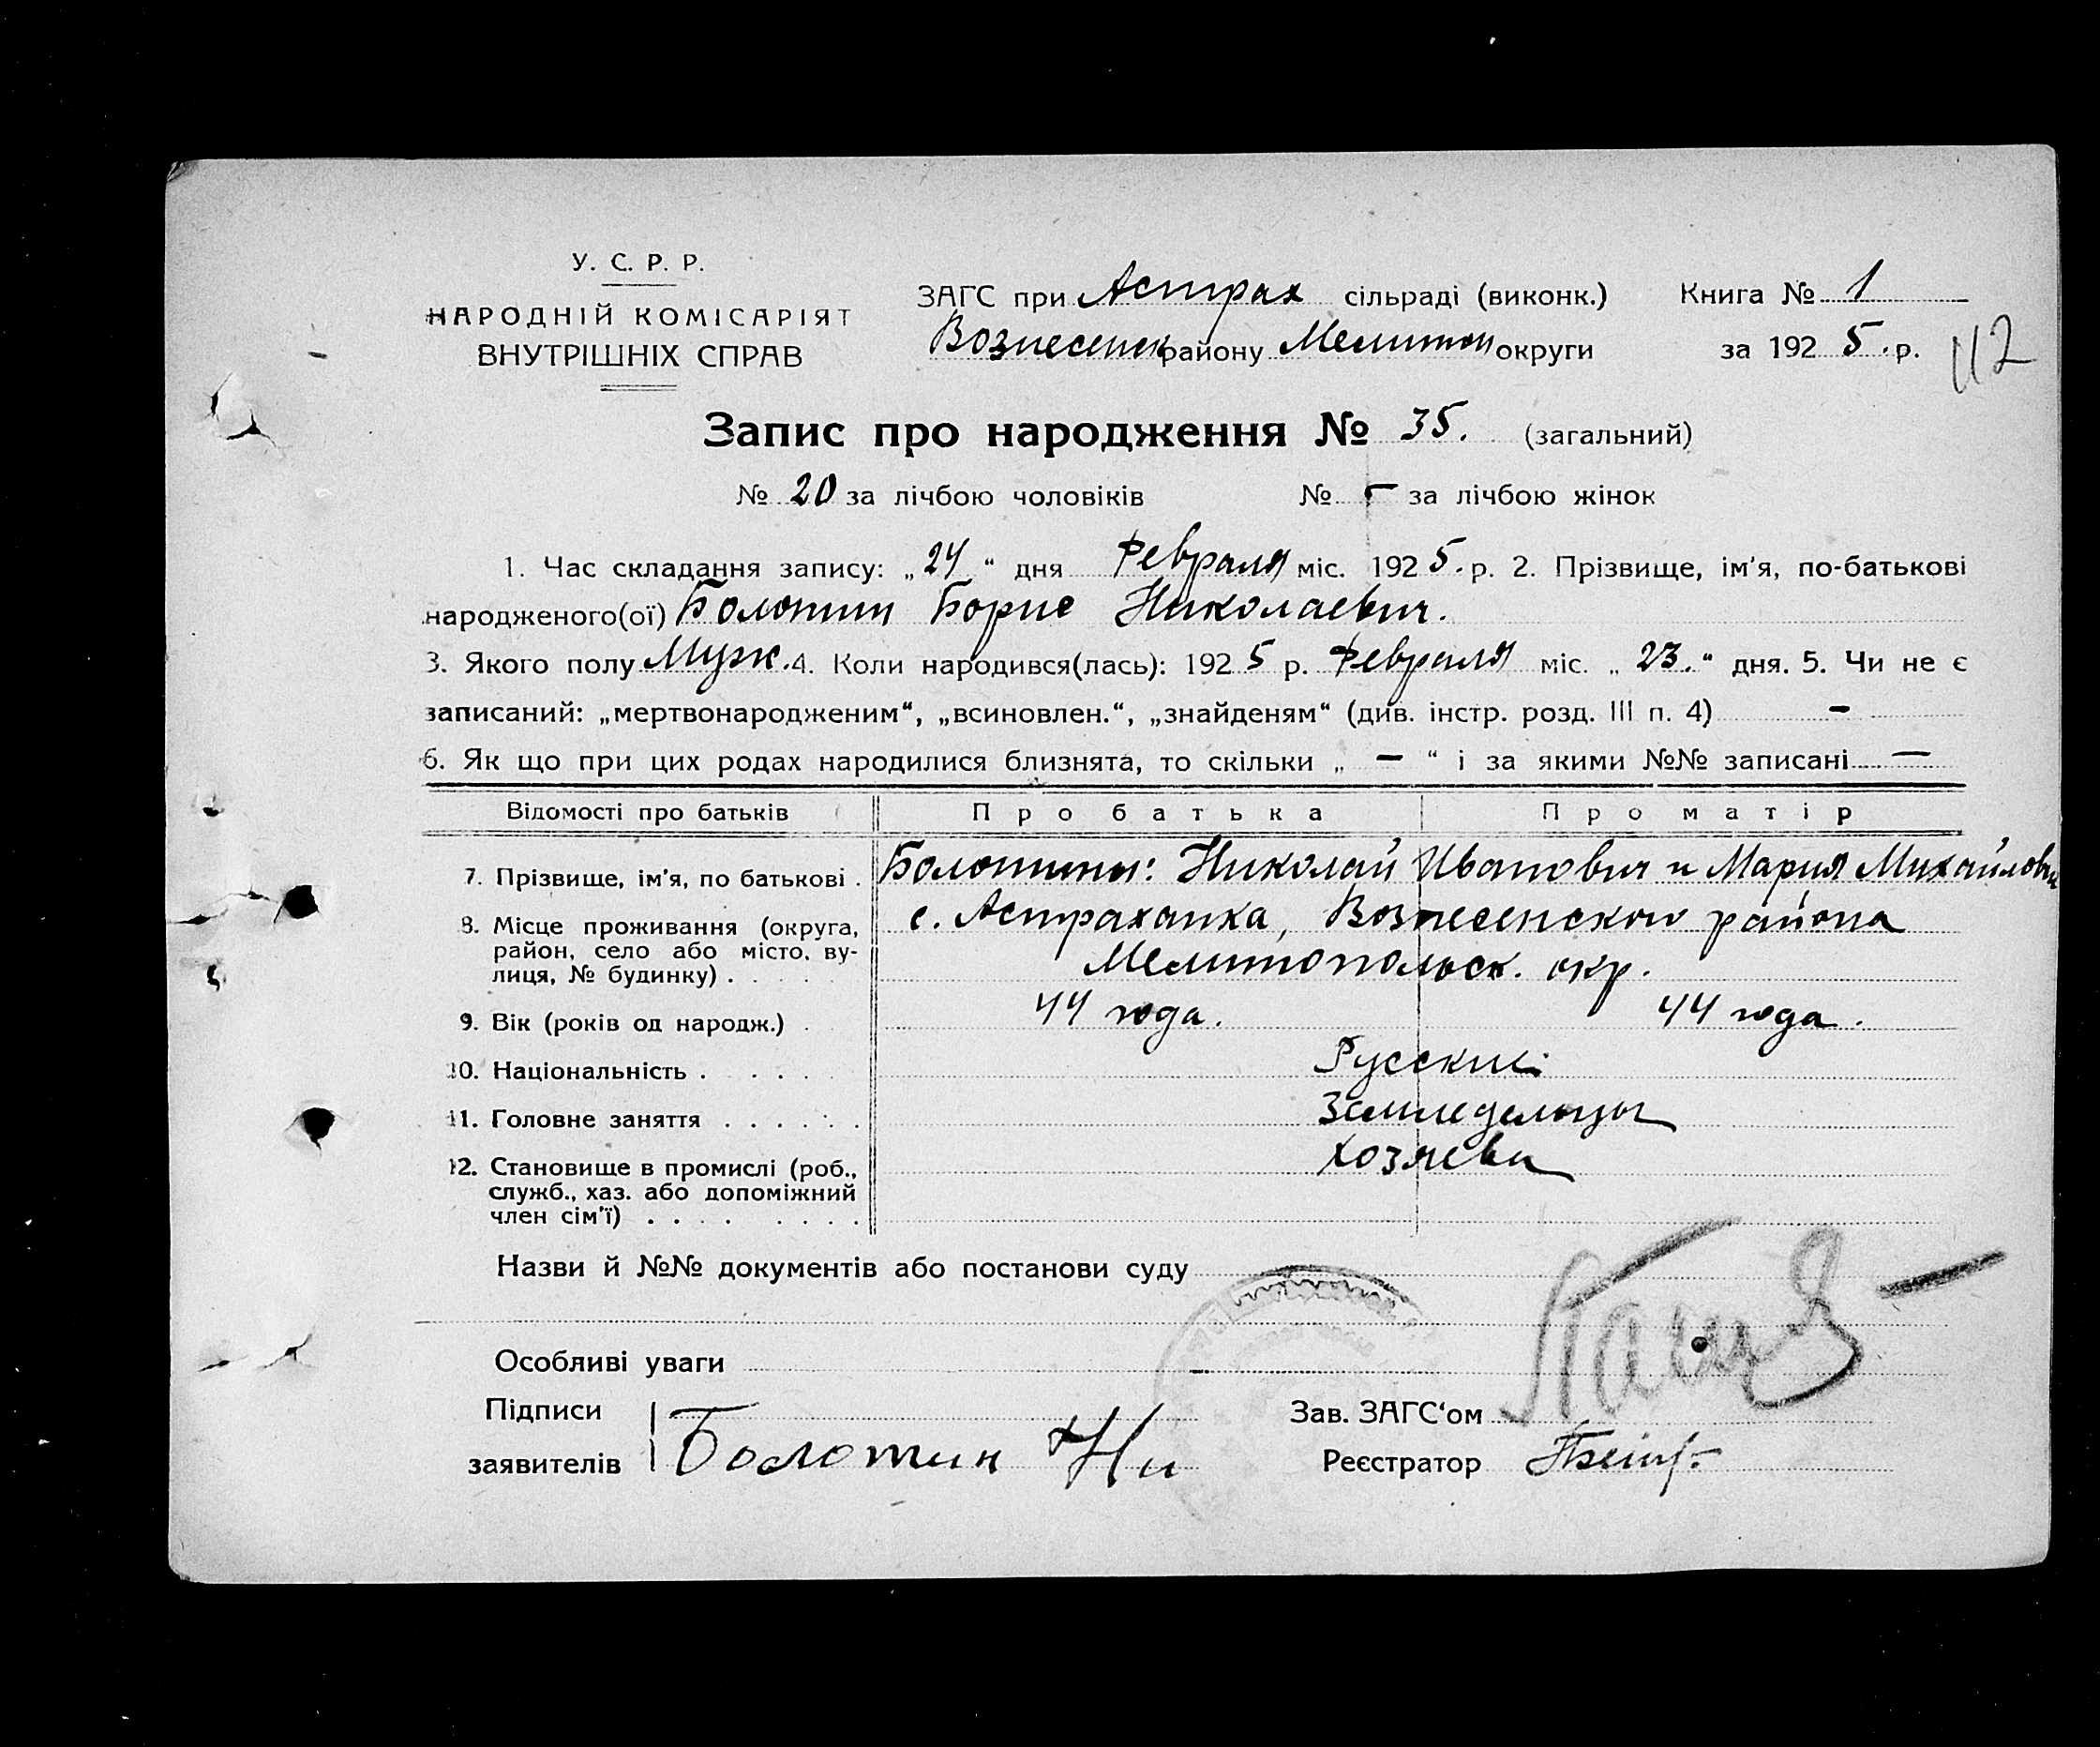 У. С. Р. Р.
НАРОДНІЙ КОМІСАРІЯТ
ВНУТРІШНІХ СПРАВ
ЗАГС при Астрах сільраді (виконк.)
Вознесенск району Мелитоп округи
Книга № 1
за 1925. р.
112
Запис про народження № 35. (загальний)
№ 20 за лічбою чоловіків № – за лічбою жінок
1. Час складання запису: „24“ дня Февраля міс. 1925. р. 2. Прізвище, ім'я, по-батькові
народженого(ої) Болотин Борис Николаевич.
3. Якого полу Муж. 4. Коли народився(лась): 1925 р. Февраля міс. „23.“ дня. 5. Чи не є
записаний: „мертвонародженим“, „всиновлен.“, „знайденям“ (див. інстр. розд. III п. 4) –
6. Як що при цих родах народилися близнята, то скільки „ – “ і за якими №№ записані –
Відомості про батьків Про батька Про матір
7. Прізвище, ім'я, по батькові . Болотины: Николай Иванович и Мария Михайловн
8. Місце проживання (округа, с. Астраханка, Вознесенского района
район, село або місто, ву-
лиця, № будинку) . . . . . Мелитопольск. окр.
9. Вік (років од народж.) . 44 года. 44 года.
10. Національність . . . . . Русские
11. Головне заняття . . . . . . Земледельцы
12. Становище в промислі (роб., Хозяева
служб., хаз. або допоміжний
член сім'ї) . . . . . . . .
Назви й №№ документів або постанови суду
Особливі уваги –
Підписи
заявителів Болотин Ни
Зав. ЗАГС‘ом
Реєстратор